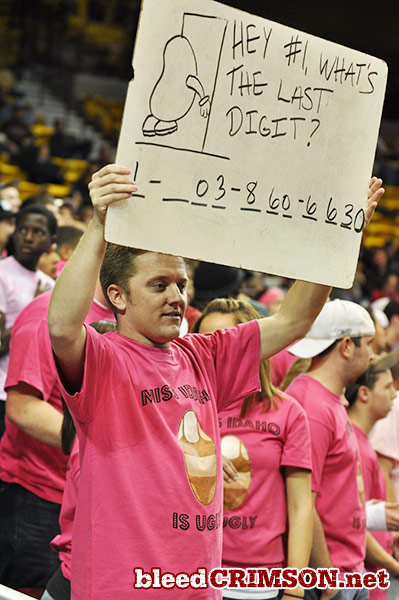 HEY #1, WHAT'S
THE LAST
DIGIT?
1 - _ 03-860-6630
MISS IDAHO
IS UGLY
IDAHO
UGLY
bleedCRIMSON.net